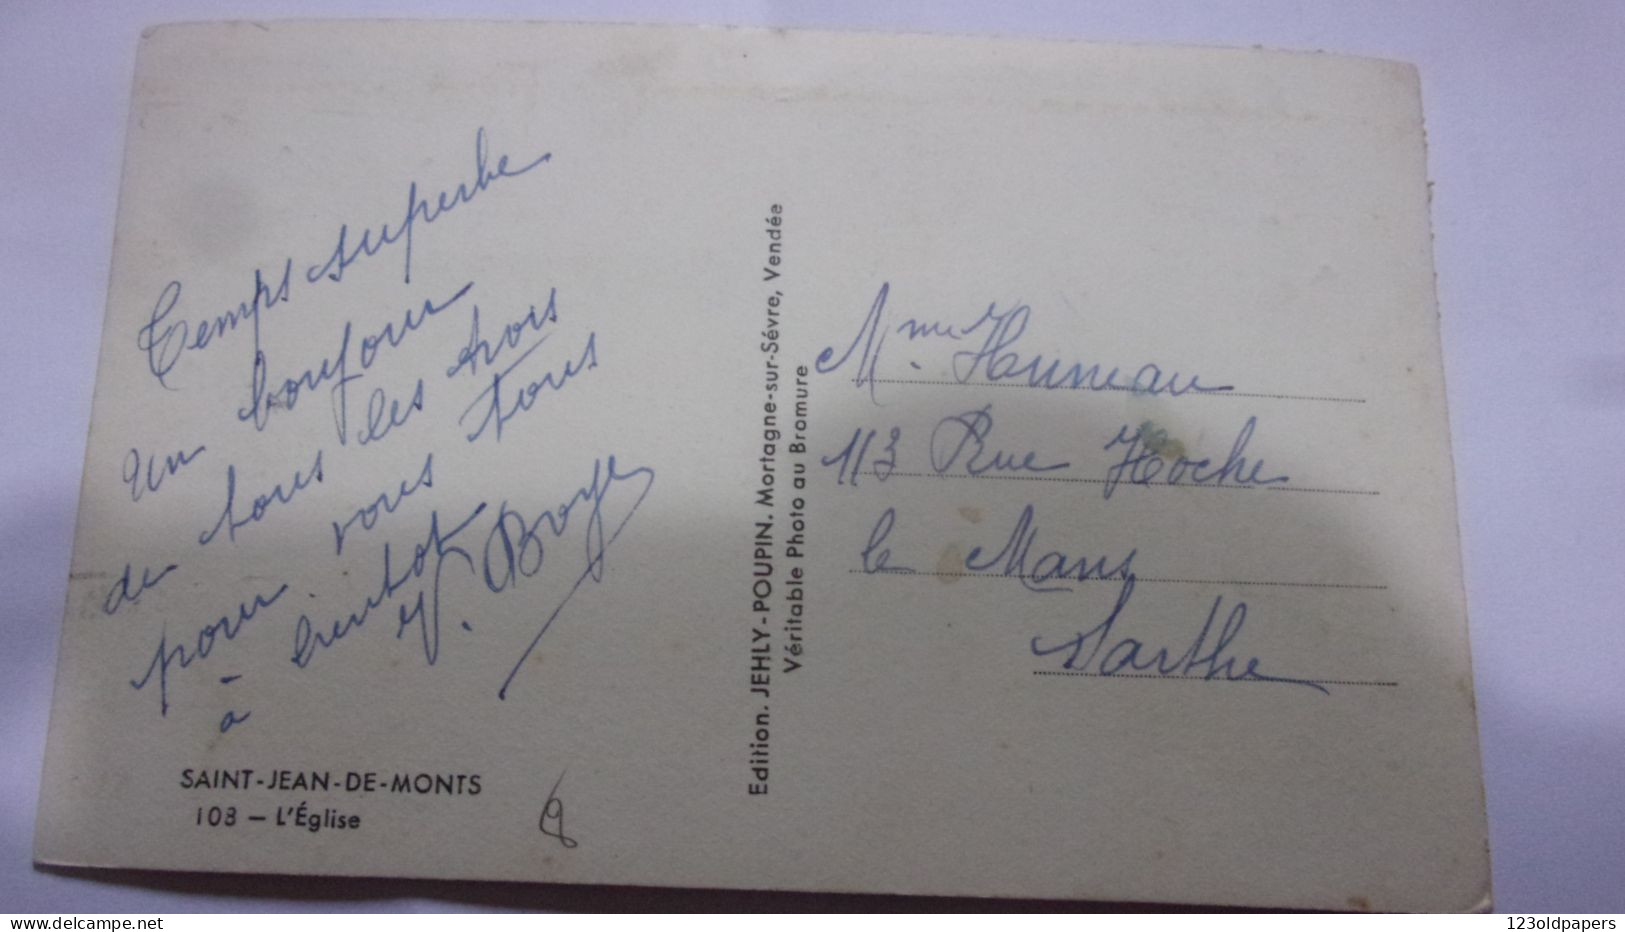 Temps superbe
Un bonjour
de tous les trois
pour vous tous
à bientot
SAINT-JEAN-DE-MONTS
108 — L'Église
8
Edition. JEHLY-POUPIN. Mortagne-sur-Sèvre, Vendée
Véritable Photo au Bromure
Mme Huneau
113 Rue Hoche
le Mans
Sarthe
123oldpapers